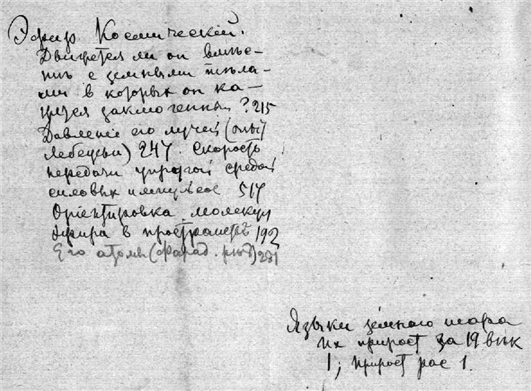 Эфир Космическей.
Движется ли он вмѣс-
тѣ с земными тѣла-
ми в которых он ка-
жется заключенным ? 215
Давленіе его лучей (опыт
Лебедева) 247. Скорость
передачи упругой средой
силовых импульсов 517
Оріентировка молекул
эфира в пространствѣ 192
Его атомы (Фарад.) 231
Языки земного шара
их прирост за 19 вѣк
1, прирост рас 1.